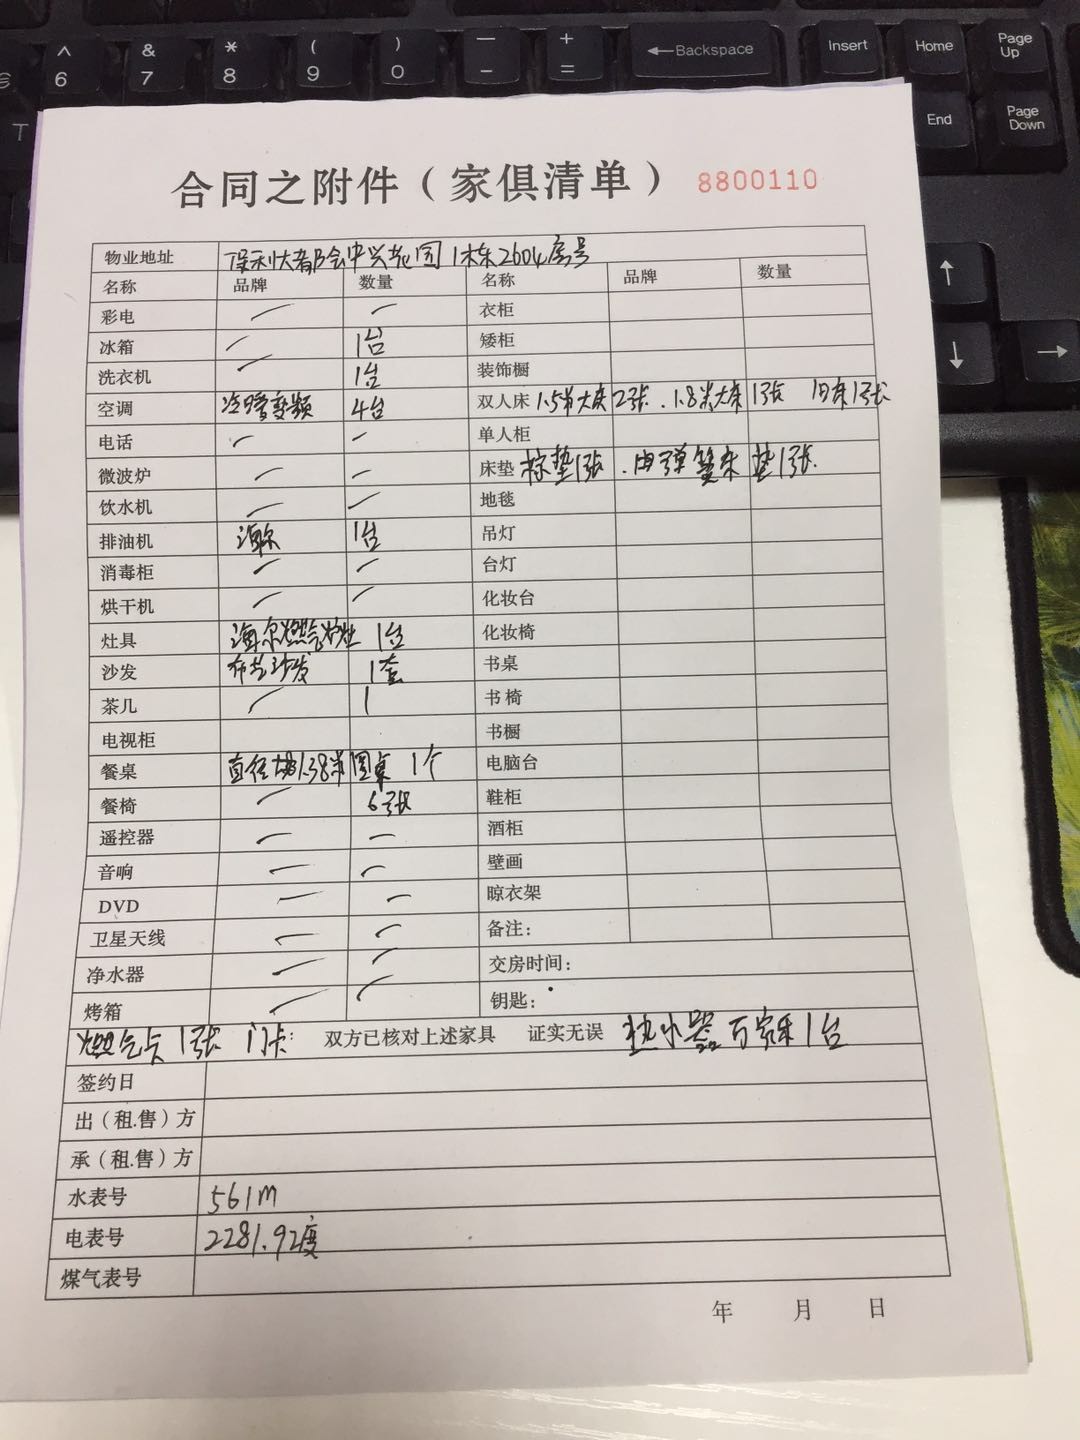 6 7 8 9 0 - = Backspace Insert Home Page Up
End Page Down
合同之附件（家俱清单） 8800110
物业地址 保利大都会中兴花园1栋2604房号
名称 品牌 数量 名称 品牌 数量
彩电 — — 衣柜
冰箱 — 1台 矮柜
洗衣机 — 1台 装饰橱
空调 冷暖变频 4台 双人床 1.5米大床2张．1.8米大床1张 旧床1张
电话 — — 单人柜
微波炉 — — 床垫 棕垫1张． 弹簧床垫1张.
饮水机 — — 地毯
排油机 海尔 1台 吊灯
消毒柜 — — 台灯
烘干机 — — 化妆台
灶具 海尔燃气炉灶 1台 化妆椅
沙发 布艺沙发 1套 书桌
茶几 — 1 书椅
电视柜 书橱
餐桌 直径1.38米圆桌 1个 电脑台
餐椅 — 6张 鞋柜
遥控器 — — 酒柜
音响 — — 壁画
DVD — — 晾衣架
卫星天线 — — 备注：
净水器 — — 交房时间：
烤箱 — — 钥匙：
燃气卡1张 门卡： 双方已核对上述家具 证实无误 热水器万家乐1台
签约日
出（租.售）方
承（租.售）方
水表号 561m
电表号 2281.92度
煤气表号
年 月 日